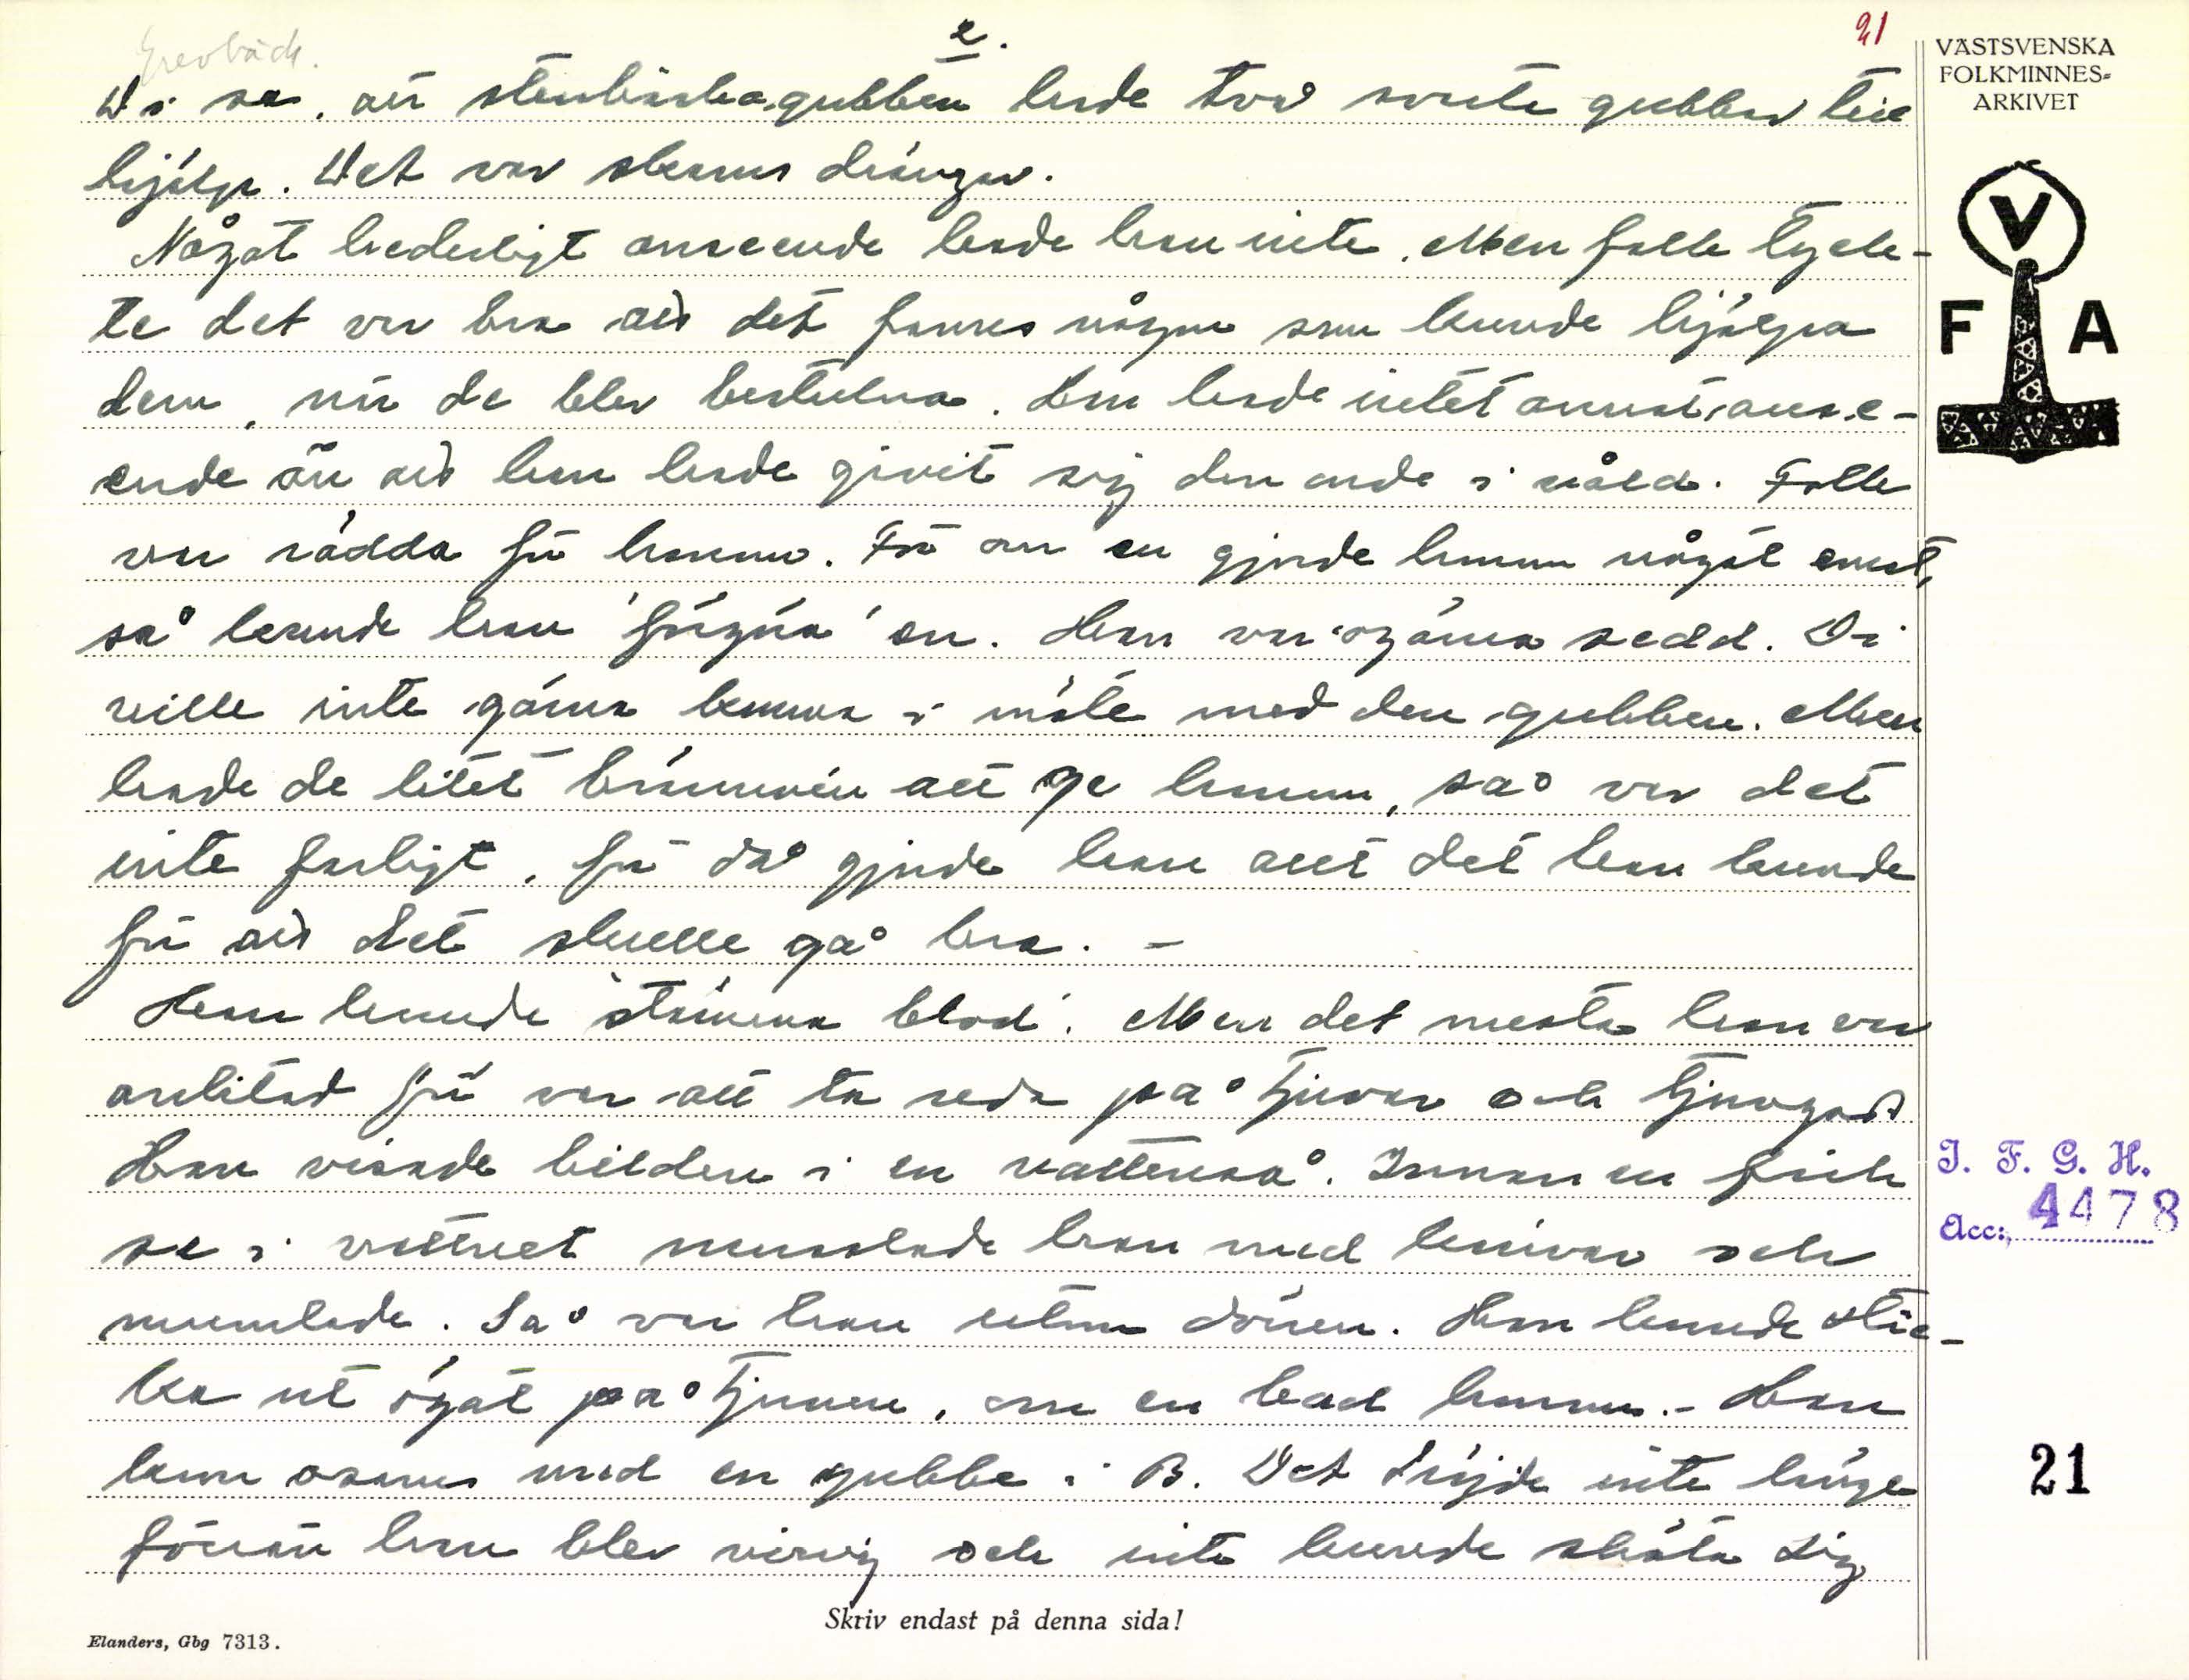 Grevbäck.
2.
21
Di sa, att stenbäcka-gubben hade två svarta gubbar till
hjälp. Det var skams drängar.
Något hederligt anseende hade han inte. Men folk tyck-
te det var bra att det fanns någon som kunde hjälpa
dem, när de blev bestulna. Han hade intet annat anse-
ende än att han hade givit sig den onde i våld. Folk
var rädda för honom. För om en gjorde honom något emot,
så kunde han 'förgöra' en. Han var ogärna sedd. Di
ville inte gärna komma i möte med den gubben. Men
hade de litet brännvin att ge honom, så var det
inte farligt, för då gjorde han allt det han kunde
för att det skulle gå bra. -
Han kunde 'stämma blod'. Men det mesta han var
anlitad för var att ta reda på tjuvar och tjuvgods
Han visade bilden i en vattenså. Innan en fick
se i vattnet med knivar och
mumlade. Så var han utom dörren. Han kunde stic-
ka ut ögat på tjuven, om en bad honom. - Han
kom osams med en gubbe i B. Det dröjde inte länge
förrän han blev virrig och inte kunde sköta sig
Skriv endast på denna sida!
Elanders, Gbg 7313.
VÄSTSVENSKA
FOLKMINNES-
ARKIVET
V
F A
I. F. G. H.
Acc: 4478
21